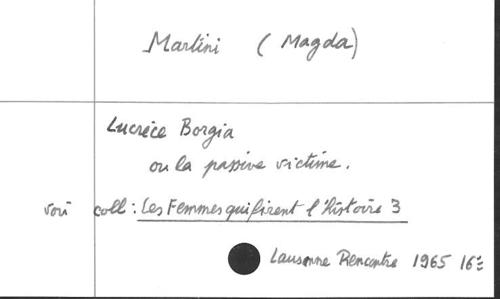 Martini (Magda)
Lucrèce Borgia
ou la passive victime.
voir coll : Les Femmes qui firent l'histoire 3
Lausanne Rencontre 1965 16º